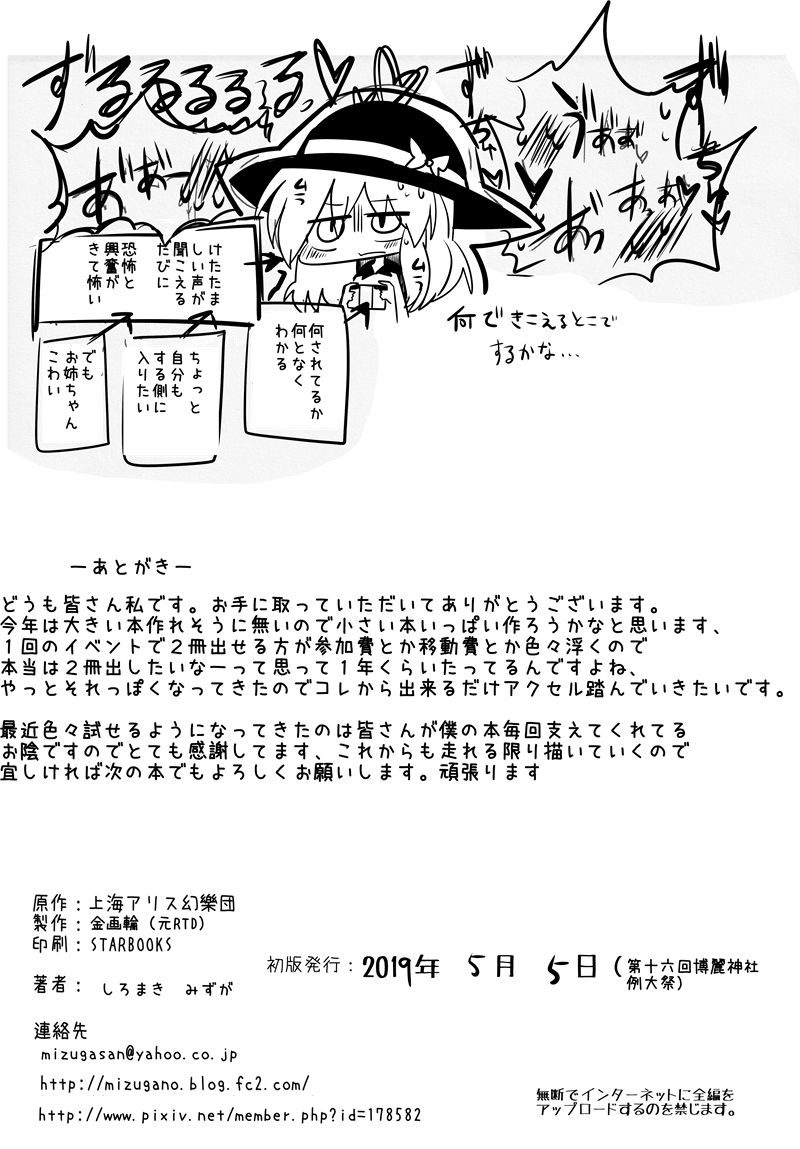 ずるるるるる、♡
ずちゅ
ずちゅ
ムラ
ムラ
けたたま
しい声が
聞こえる
たびに
恐怖と
興奮が
きて怖い
何されてるか
何となく
わかる
ちょっと
自分も
する側に
入りたい
でも
お姉ちゃん
こわい
何できこえるとこで
するかな...
ーあとがきー
どうも皆さん私です。お手に取っていただいてありがとうございます。
今年は大きい本作れそうに無いので小さい本いっぱい作ろうかなと思います、
1回のイベントで2冊出せる方が参加費とか移動費とか色々浮くので
本当は2冊出したいなーって思って1年くらいたってるんですよね、
やっとそれっぽくなってきたのでコレから出来るだけアクセル踏んでいきたいです。
最近色々試せるようになってきたのは皆さんが僕の本毎回支えてくれてる
お陰ですのでとても感謝してます、これからも走れる限り描いていくので
宜しければ次の本でもよろしくお願いします。頑張ります
原作：上海アリス幻樂団
製作：金画輪（元RTD）
印刷：STARBOOKS
初版発行：2019年 5月 5日（第十六回博麗神社
例大祭）
著者： しろまき みずが
連絡先
mizugasan@yahoo.co.jp
http://mizugano.blog.fc2.com/
http://www.pixiv.net/member.php?id=178582
無断でインターネットに全編を
アップロードするのを禁じます。